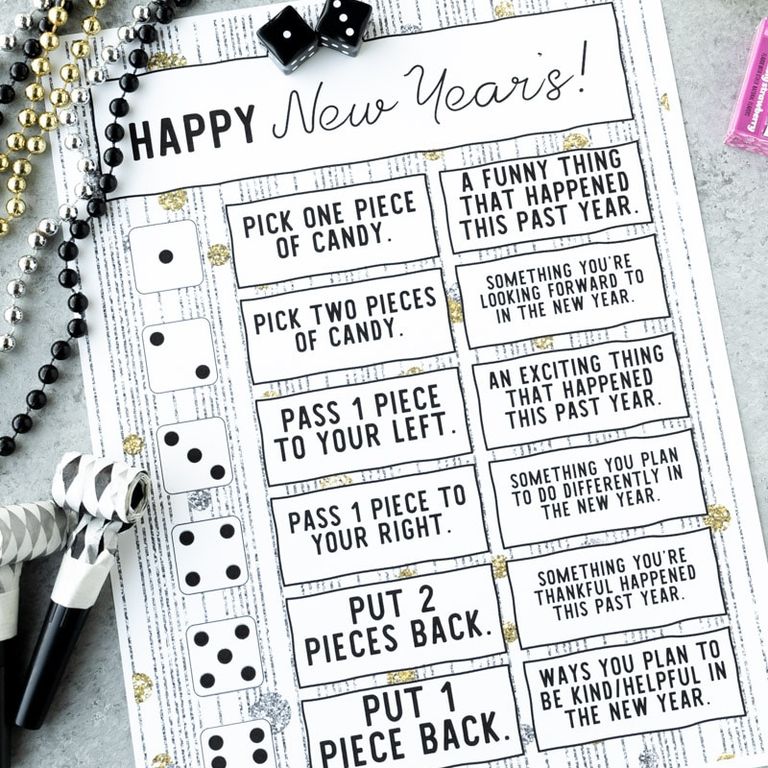 HAPPY New Year's!
PICK ONE PIECE
OF CANDY.
A FUNNY THING
THAT HAPPENED
THIS PAST YEAR.
PICK TWO PIECES
OF CANDY.
SOMETHING YOU'RE
LOOKING FORWARD TO
IN THE NEW YEAR.
PASS 1 PIECE
TO YOUR LEFT.
AN EXCITING THING
THAT HAPPENED
THIS PAST YEAR.
PASS 1 PIECE TO
YOUR RIGHT.
SOMETHING YOU PLAN
TO DO DIFFERENTLY IN
THE NEW YEAR.
PUT 2
PIECES BACK.
SOMETHING YOU'RE
THANKFUL HAPPENED
THIS PAST YEAR.
PUT 1
PIECE BACK.
WAYS YOU PLAN TO
BE KIND/HELPFUL IN
THE NEW YEAR.
strawberry